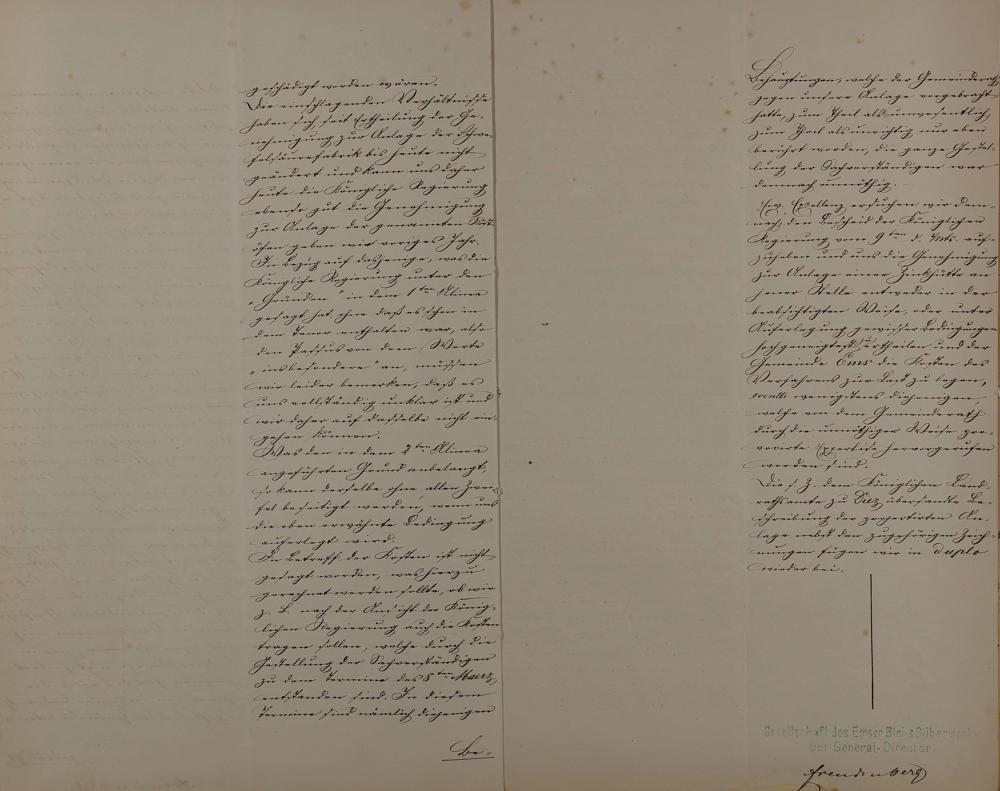 geschädigt worden wären.
Die einschlagenden Verhältnisse
haben sich seit Ertheilung der Ge-
nehmigung zur Anlage der Schwe-
felsäurefabrik bis heute nicht
geändert und kann uns daher
heute die Königliche Regierung
ebenso gut die Genehmigung
zur Anlage der genannten Röst-
öfen geben wie voriges Jahr.
In Bezug auf dasjenige, was die
Königliche Regierung unter den
"Gründen" in dem 1ten Alinea
gesagt hat, ohne daß es schon in
dem Tenor enthalten war, also
den Passus von dem Worte
"insbesondere" an, müssen
wir leider bemerken, daß es
uns vollständig unklar ist und
wir daher auf dasselbe nicht ein-
gehen können.
Was den in dem 2ten Alinea
angeführten Grund anbelangt,
so kann derselbe ohne allen Zwei-
fel beseitigt werden, wenn uns
die oben erwähnte Bedingung
auferlegt wird.
In Betreff der Kosten ist nicht
gesagt worden, was hierzu
gerechnet werden sollte, ob wir
z. B. nach der Ansicht der König-
lichen Regierung auch die Kosten
tragen sollen, welche durch die
Gestellung der Sachverständigen
zu dem Termine des 8ten Maerz
entstanden sind. In diesem
Termine sind nämlich diejenigen
Be-
Behauptungen, welche der Gemeinderath
gegen unsere Anlage vorgebracht
hatte, zum Theil als unwesentlich,
zum Theil als unrichtig nur eben
berührt worden, die ganze Gestel-
lung der Sachverständigen war
demnach unnöthig.
Ew. Excellenz ersuchen wir dem-
nach, den Bescheid der Königlichen
Regierung vom 9ten d. Mts. auf-
zuheben und uns die Genehmigung
zur Anlage einer Zinkhütte an
jener Stelle entweder in der
beabsichtigten Weise, oder unter
Auferlegung gewisser Bedingungen
hochgeneigtest zu ertheilen und der
Gemeinde Ems die Kosten des
Verfahrens zur Last zu legen,
eventl. wenigstens diejenigen,
welche von dem Gemeinderath
durch die unnöthiger Weise pro-
vocirte Expertise hervorgerufen
worden sind.
Die s. Z. dem Königlichen Land-
rathsamte zu Diez übersandte Be-
schreibung der projectirten An-
lage nebst den zugehörigen Zeich-
nungen fügen wir in duplo
wieder bei.
Gesellschaft des Emser Blei- & Silberwerks
Der General-Director
Freudenberg